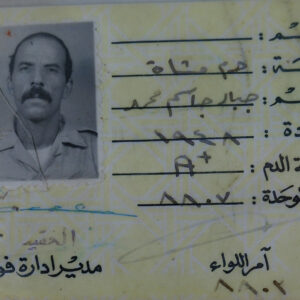 سم :
نة : جرم مشاة
سم : جبار جاسم محمد
دة : ١٩٤٨
ة الدم : A+
وحدة : ٨٨٠٧
العقيد
مدير ادارة فو
آمر اللواء
٨٨٠٣